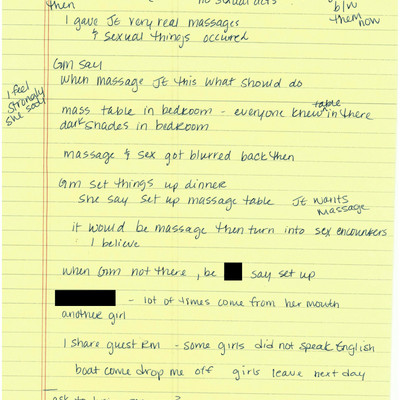 then no sexual acts b/w
them now
I gave JE very real massages
& sexual things occured
GM say
when massage JE this what should do
I feel
strongly
she said
mass table in bedroom - everyone knew table in there
dark shades in bedroom
massage & sex got blurred back then
GM set things up dinner
she say set up massage table JE wants
massage
it would be massage then turn into sex encounters
I believe
when GM not there, be say set up
- lot of times come from her mouth
another girl
I share guest rm - some girls did not speak English
boat come drop me off girls leave next day